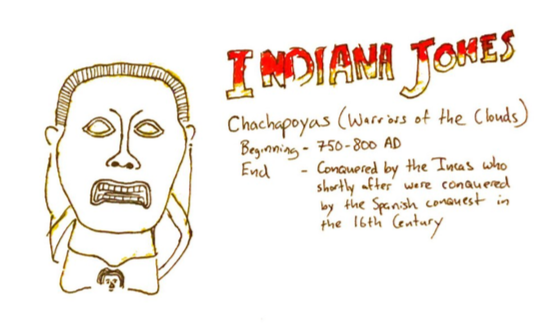 INDIANA JONES
Chachapoyas (Warriors of the Clouds)
Beginning - 750-800 AD
End - Conquered by the Incas who
shortly after were conquered
by the Spanish conquest in
the 16th Century